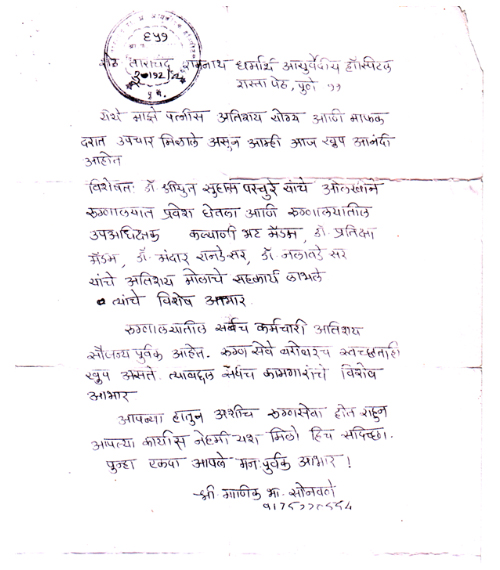 ९५१
शेठ ताराचंद रामनाथ धर्मार्थ आयुर्वेदीय हॉस्पिटल
रास्ता पेठ, पुणे ११
येथे माझे पत्नीस अतिशय योग्य आणि माफक
दरात उपचार मिळाले असुन आम्ही आज खुप आनंदी
आहोत
विशेषतः डॉ श्रीयुत सुहास परचुरे यांचे ओळखीने
रुग्णालयात प्रवेश घेतला आणि रुग्णालयातील
उपअधिक्षक कल्याणी भट मॅडम, डॉ. प्रतिक्षा
मॅडम, डॉ. मंदार रानडे सर, डॉ. नलावडे सर
यांचे अतिशय मोलाचे सहकार्य लाभले
त्यांचे विशेष आभार.
रुग्णालयातील सर्वच कर्मचारी अतिशय
सौजन्य पुर्वक आहेत. रुग्ण सेवे बरोबरच स्वच्छताही
खुप असते. त्याबद्दल सर्वच कामगारांचे विशेष
आभार
आपल्या हातुन अशीच रुग्णसेवा होत राहुन
आपल्या कार्यास नेहमी यश मिळो हिच सदिच्छा.
पुन्हा एकदा आपले मनःपुर्वक आभार !
श्री. माणिक भा. सोनवले